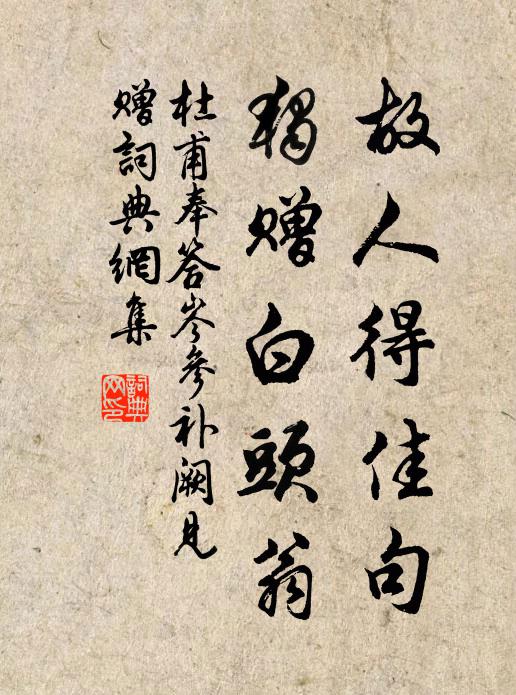 故人得佳句
獨贈白頭翁
杜甫奉答岑參补阙見
贈詞典網集
詞典
网印